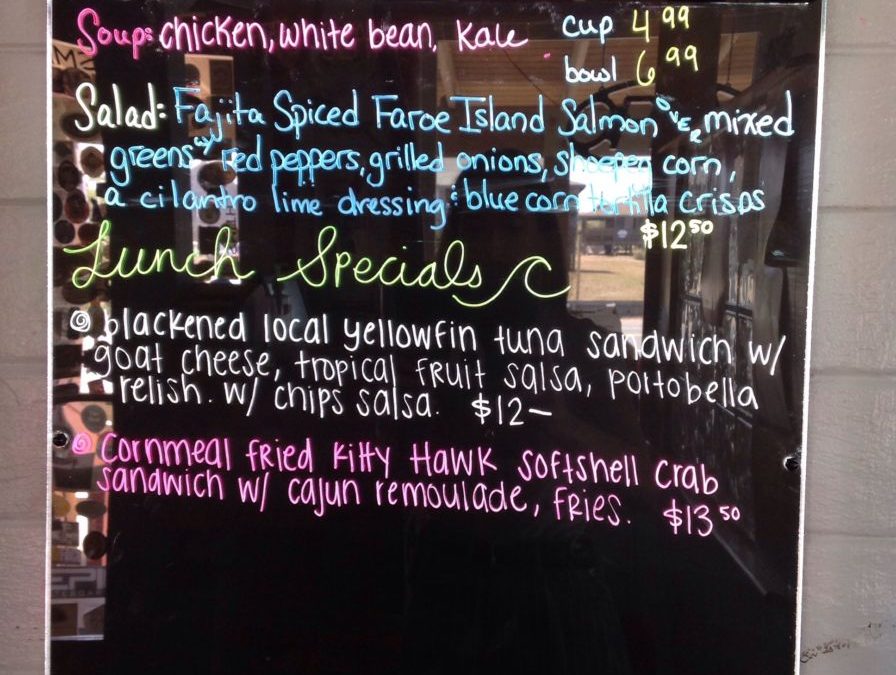 Soup: chicken, white bean, Kale cup 4.99
bowl 6.99
Salad: Fajita Spiced Faroe Island Salmon over mixed
greens w/ red peppers, grilled onions, shoepeg corn,
a cilantro lime dressing & blue corn tortilla crisps
$12.50
Lunch Specials
blackened local yellowfin tuna sandwich w/
goat cheese, tropical fruit salsa, portobella
relish. w/ chips salsa. $12—
Cornmeal fried Kitty Hawk softshell crab
sandwich w/ cajun remoulade, fries. $13.50